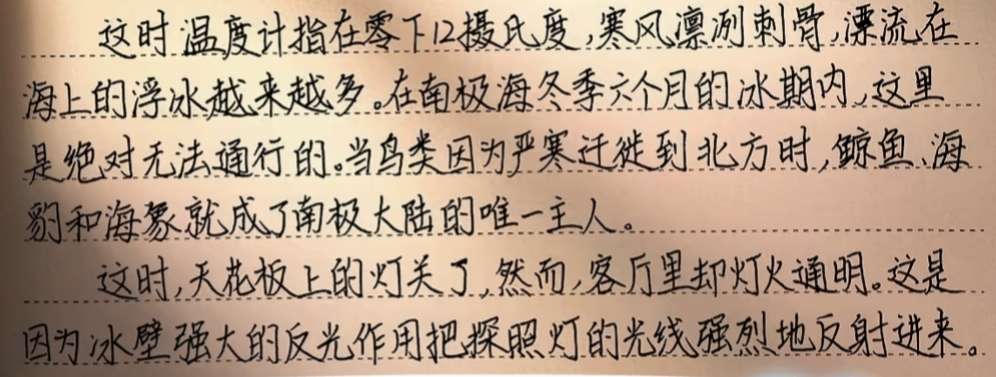 这时温度计指在零下12摄氏度,寒风凛冽刺骨,漂流在
海上的浮冰越来越多。在南极海冬季六个月的冰期内,这里
是绝对无法通行的。当鸟类因为严寒迁徙到北方时,鲸鱼、海
豹和海象就成了南极大陆的唯一主人。
这时,天花板上的灯关了,然而,客厅里却灯火通明。这是
因为冰壁强大的反光作用把探照灯的光线强烈地反射进来。